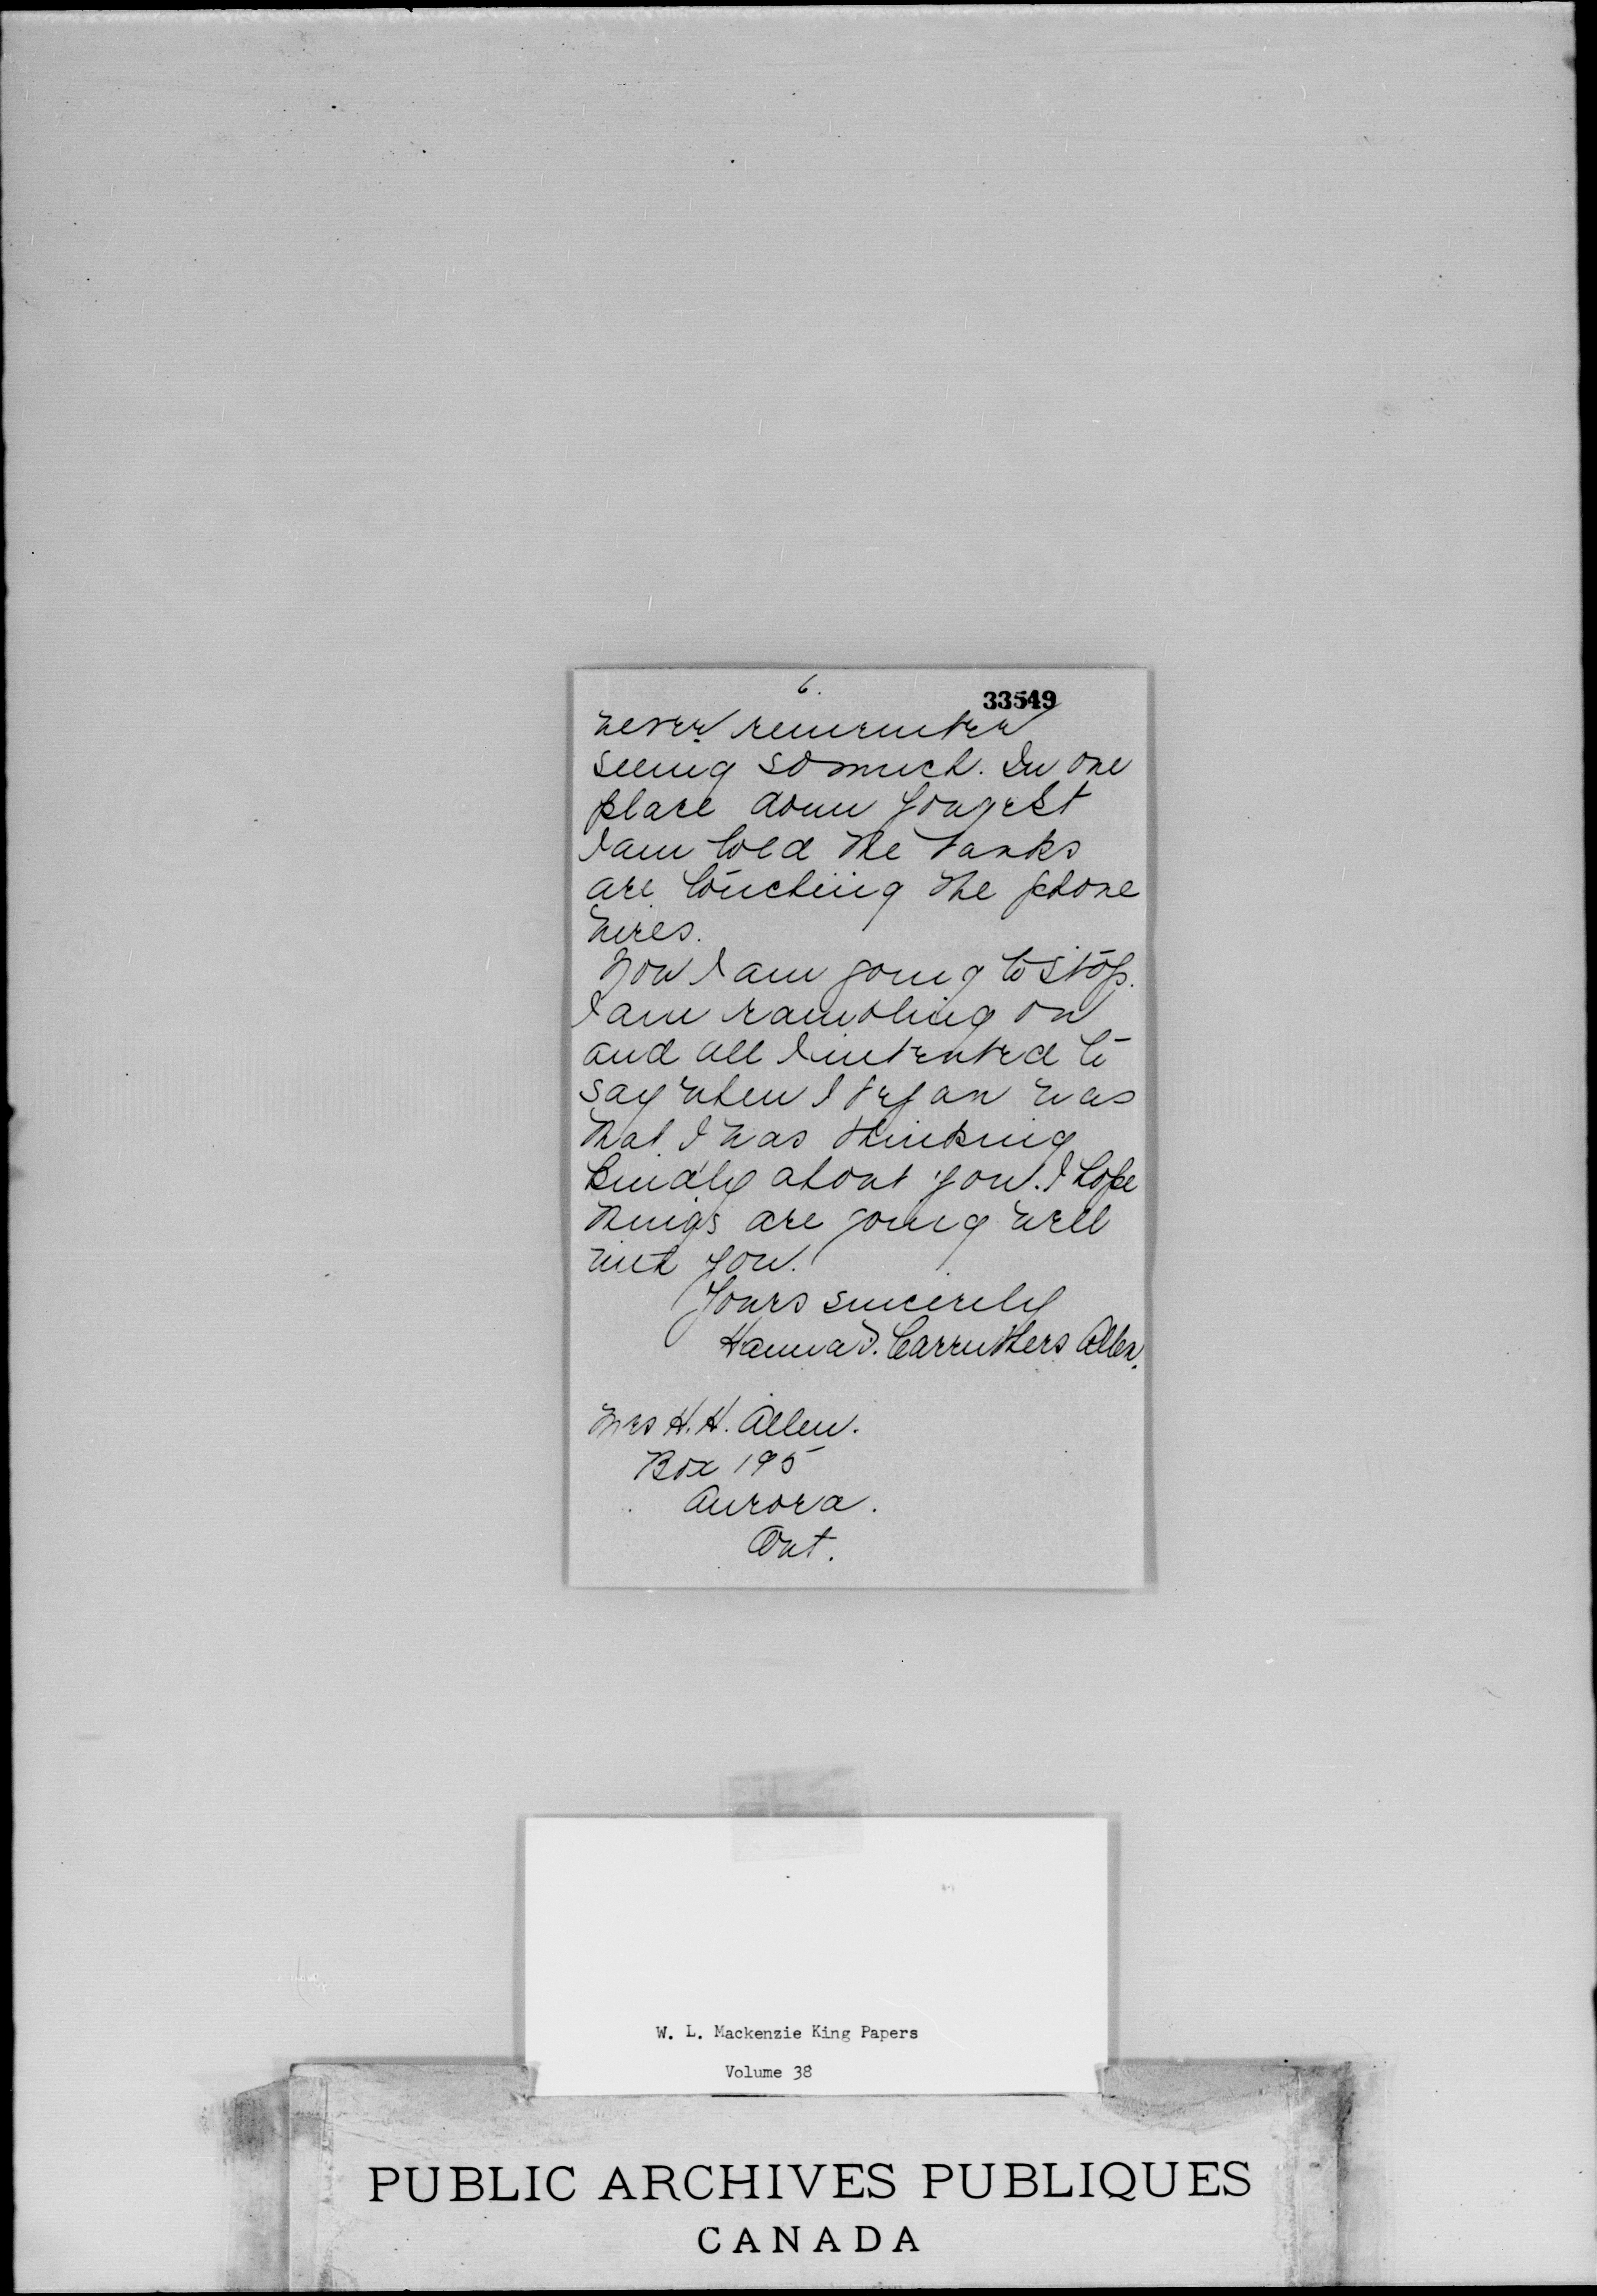 6.
33549
never remember
seeing so much. In one
place down Yonge St
I am told the banks
are touching the phone
wires.
Now I am going to stop.
I am rambling on
and all I intended to
say when I began was
that I was thinking
kindly about you. I hope
things are going well
with you.
Yours sincerely
Hanna Carruthers Allen.
Mrs H. H. Allen.
Box 195
Aurora.
Ont.
W. L. Mackenzie King Papers
Volume 38
PUBLIC ARCHIVES PUBLIQUES
CANADA